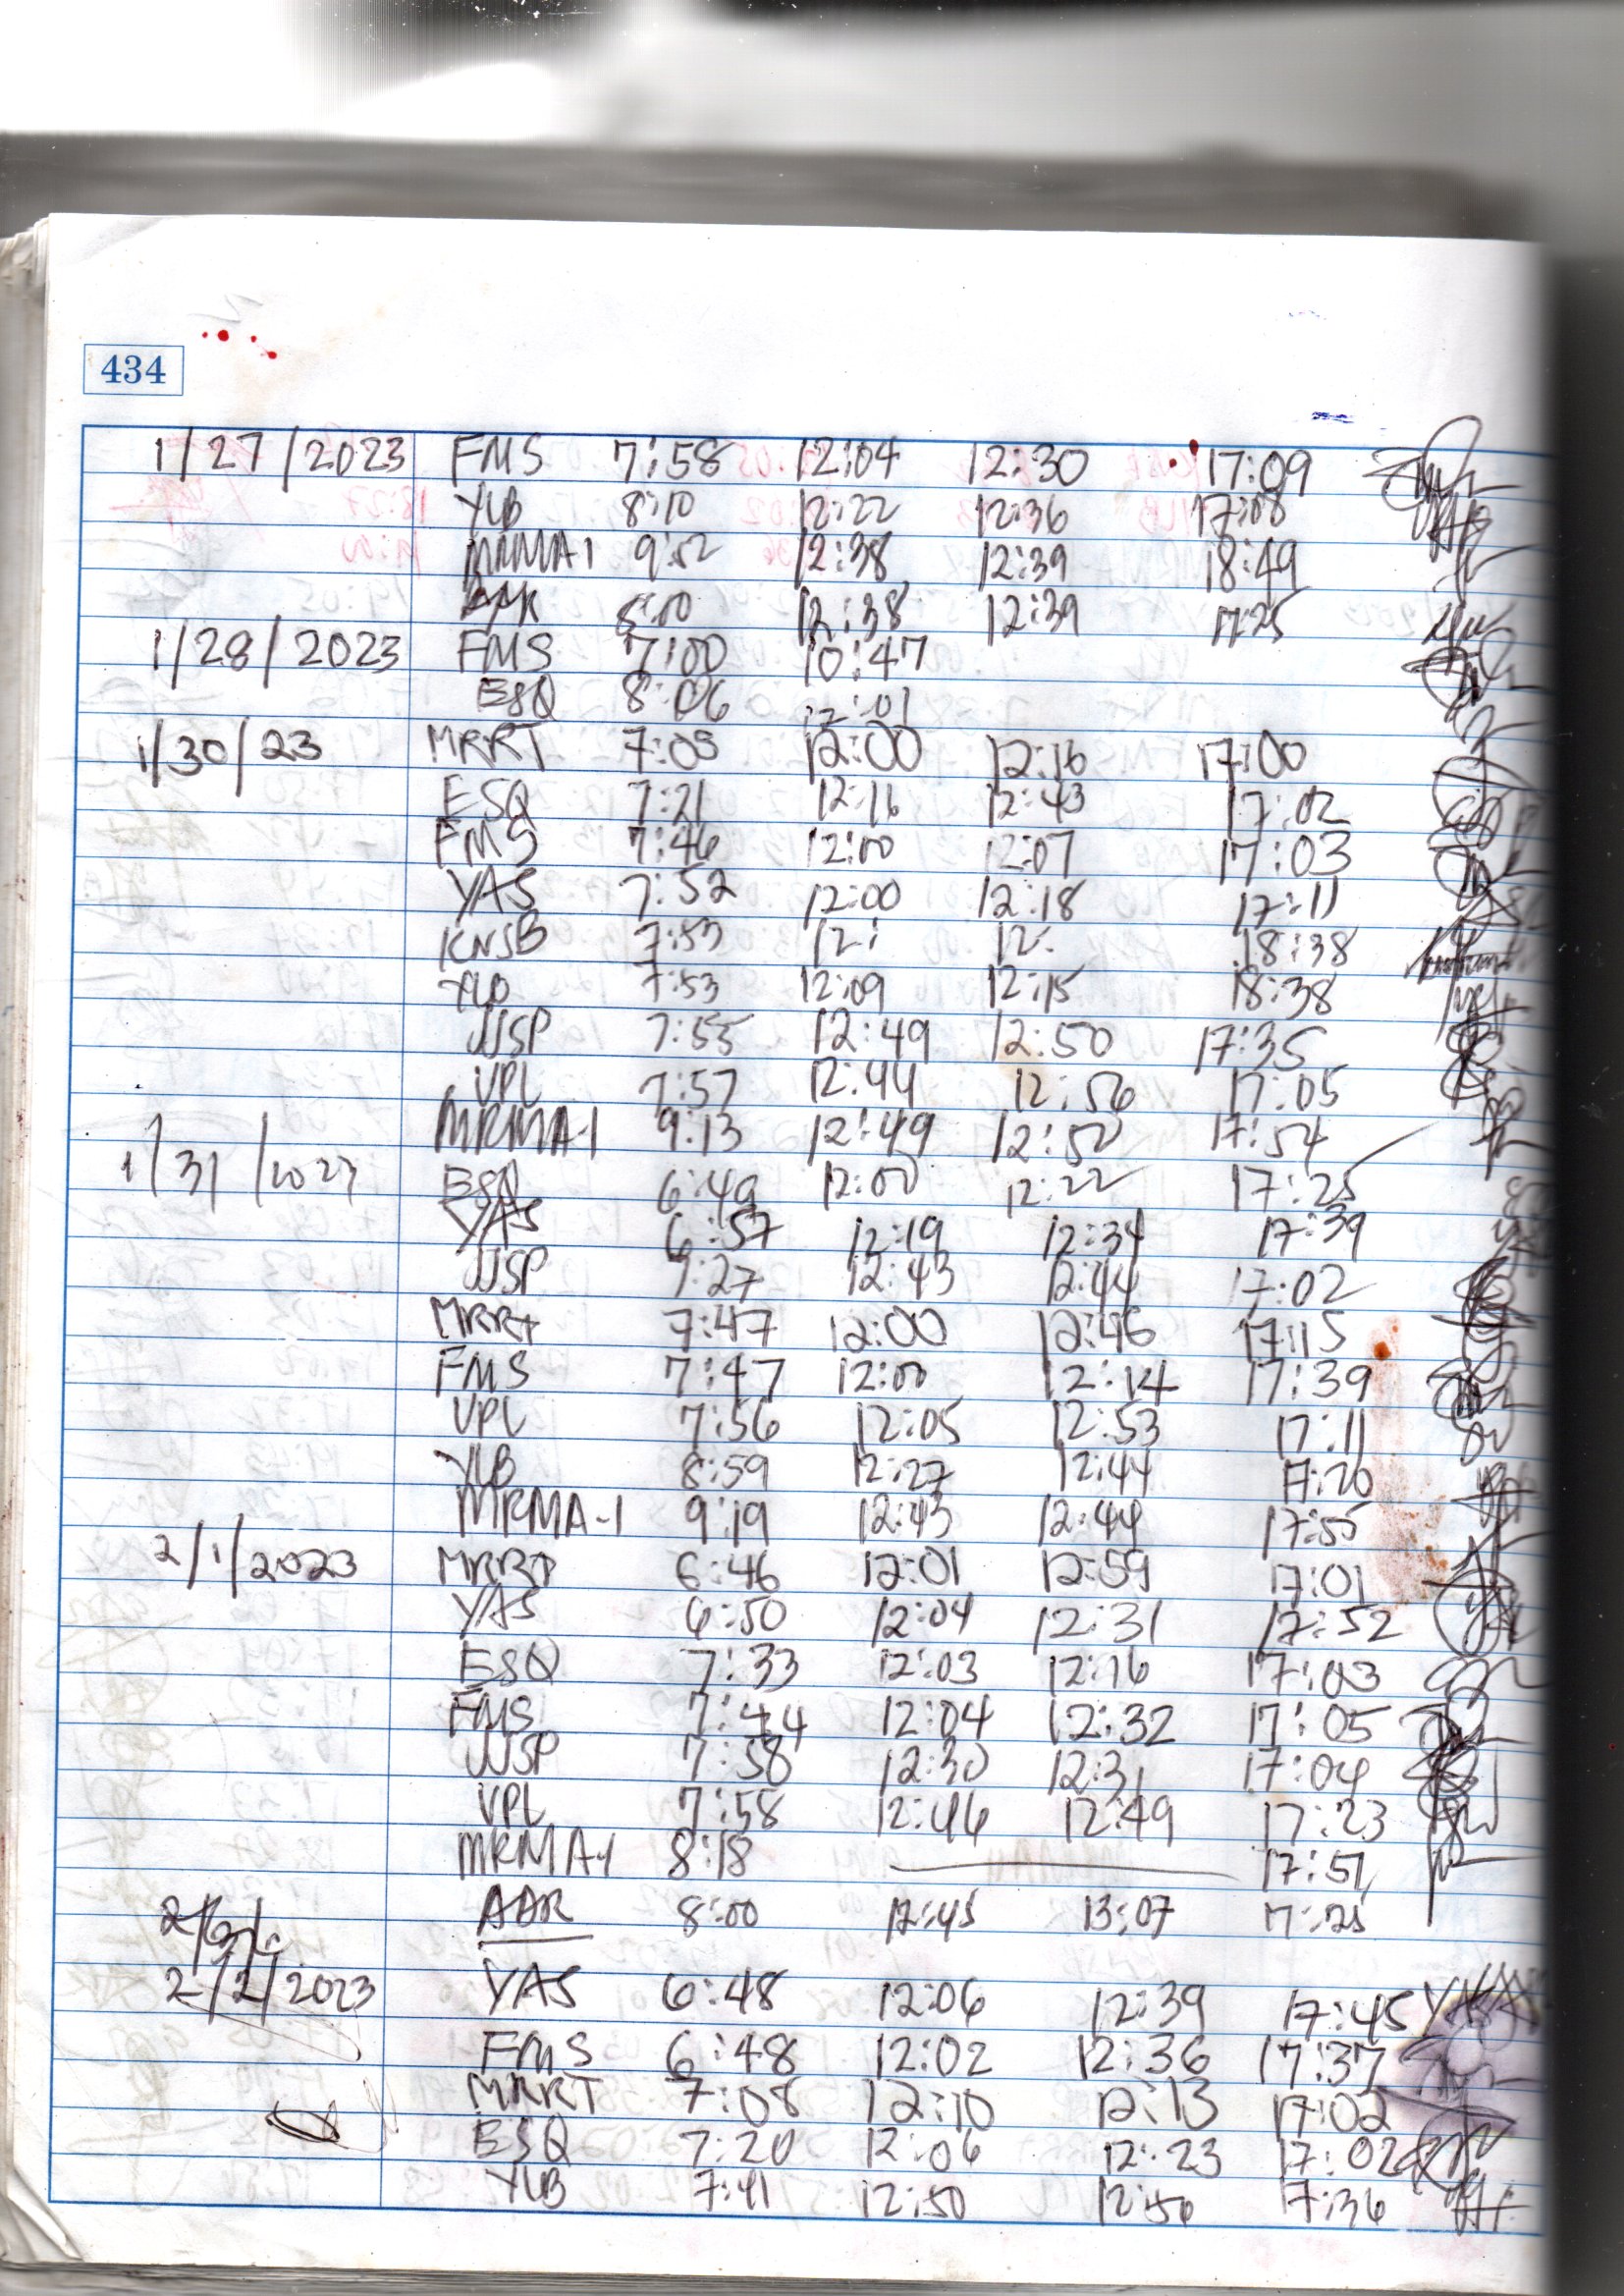 434
1/27/2023 FMS 7:58 12:04 12:30 17:09
YLB 8:10 12:22 12:36 17:08
MRMA-1 9:52 12:38 12:39 18:49
12:38 12:39 17:25
1/28/2023 FMS 7:00 10:47
ESQ 8:06 12:01
1/30/23 MRRT 7:05 12:00 12:16 17:00
ESQ 7:21 12:16 12:43 17:02
FMS 7:46 12:00 12:07 17:03
YAS 7:52 12:00 12:18 17:11
KNSB 7:53 12: 12: 18:38
YLB 7:53 12:09 12:15 18:38
JJSP 7:55 12:49 12:50 17:35
VPL 7:57 12:44 12:56 17:05
MRMA-1 9:13 12:49 12:50 17:54
1/31/2023 ESQ 6:49 12:00 12:22 17:25
YAS 6:57 12:19 12:34 17:39
JJSP 7:27 12:43 12:44 17:02
MRRT 7:47 12:00 12:46 17:15
FMS 7:47 12:00 12:14 17:39
VPL 7:56 12:05 12:53 17:11
YLB 8:59 12:27 12:44 17:20
MRMA-1 9:19 12:43 12:44 17:55
2/1/2023 MRRT 6:46 12:01 12:59 17:01
YAS 6:50 12:04 12:31 17:52
ESQ 7:33 12:03 12:16 17:03
FMS 7:44 12:04 12:32 17:05
JJSP 7:58 12:30 12:31 17:04
VPL 7:58 12:46 12:49 17:23
MRMA-1 8:18 17:51
AAR 8:00 12:45 13:07 17:25
2/2/2023 YAS 6:48 12:06 12:39 17:45
FMS 6:48 12:02 12:36 17:37
MRRT 7:08 12:10 12:13 17:02
ESQ 7:20 12:06 12:23 17:02
YLB 7:41 12:50 12:56 17:36